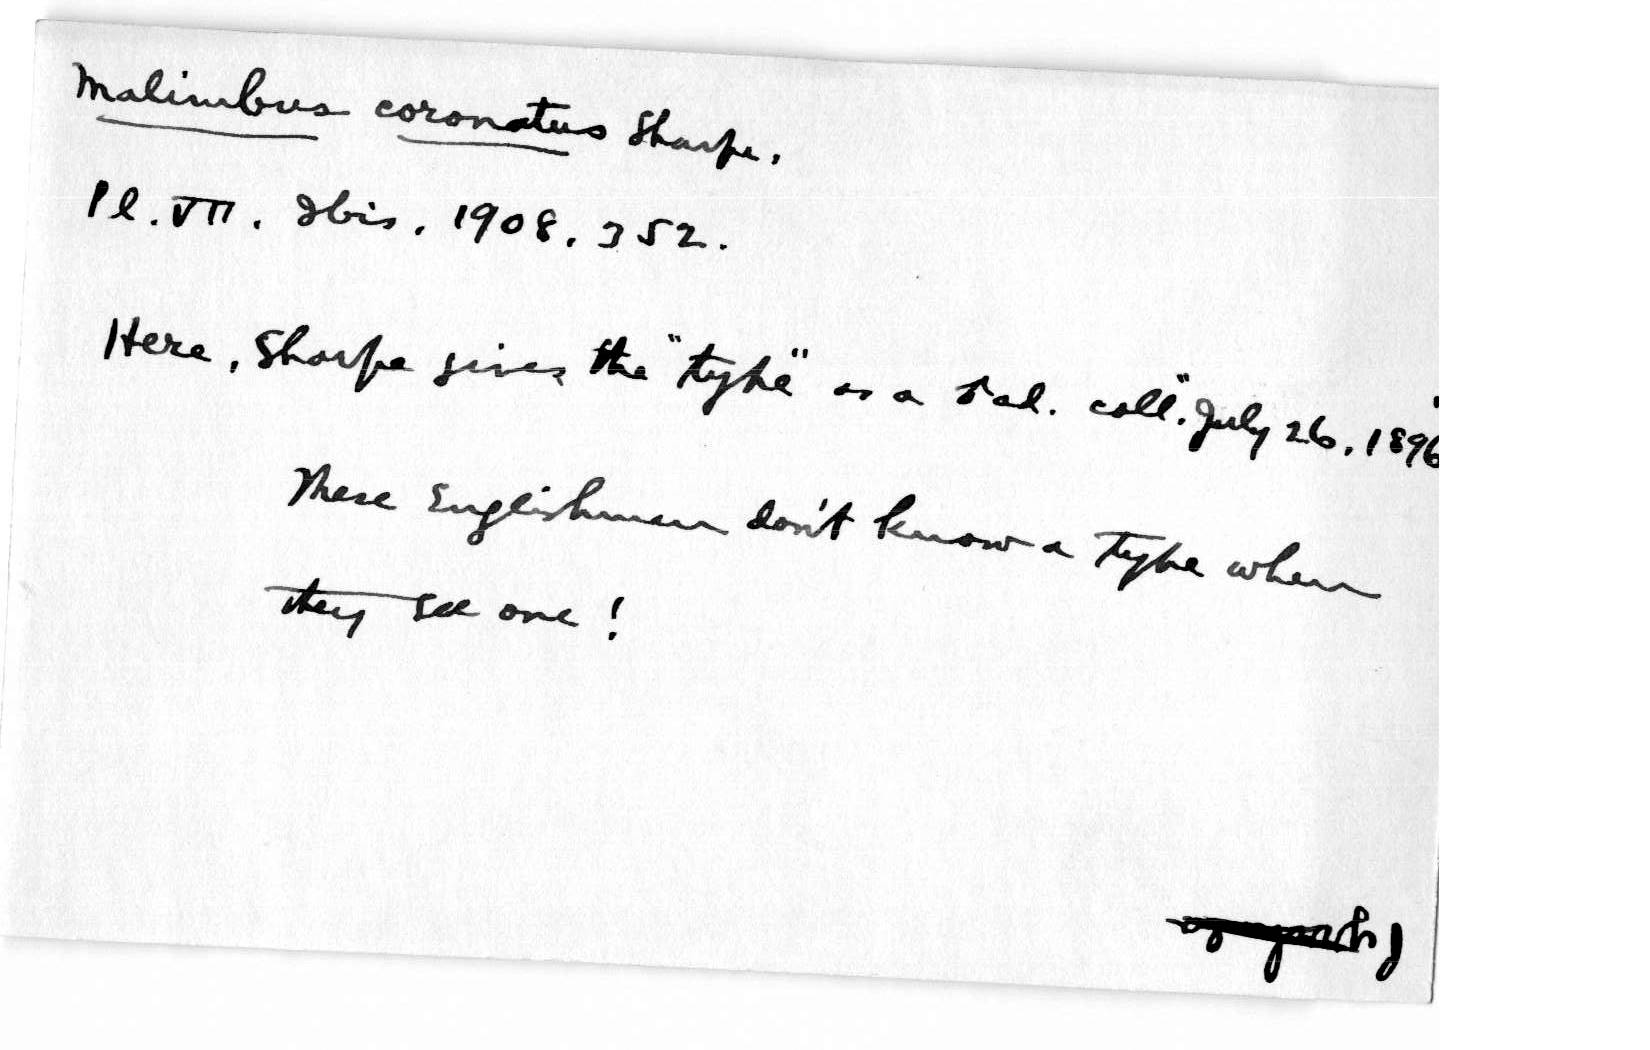 Malimbus coronatus Sharpe.
Pl. VII. Ibis. 1908. 352.
Here, Sharpe gives the "type" as a ad. coll. "July 26, 1896"
These Englishmen don't know a type when
they see one!